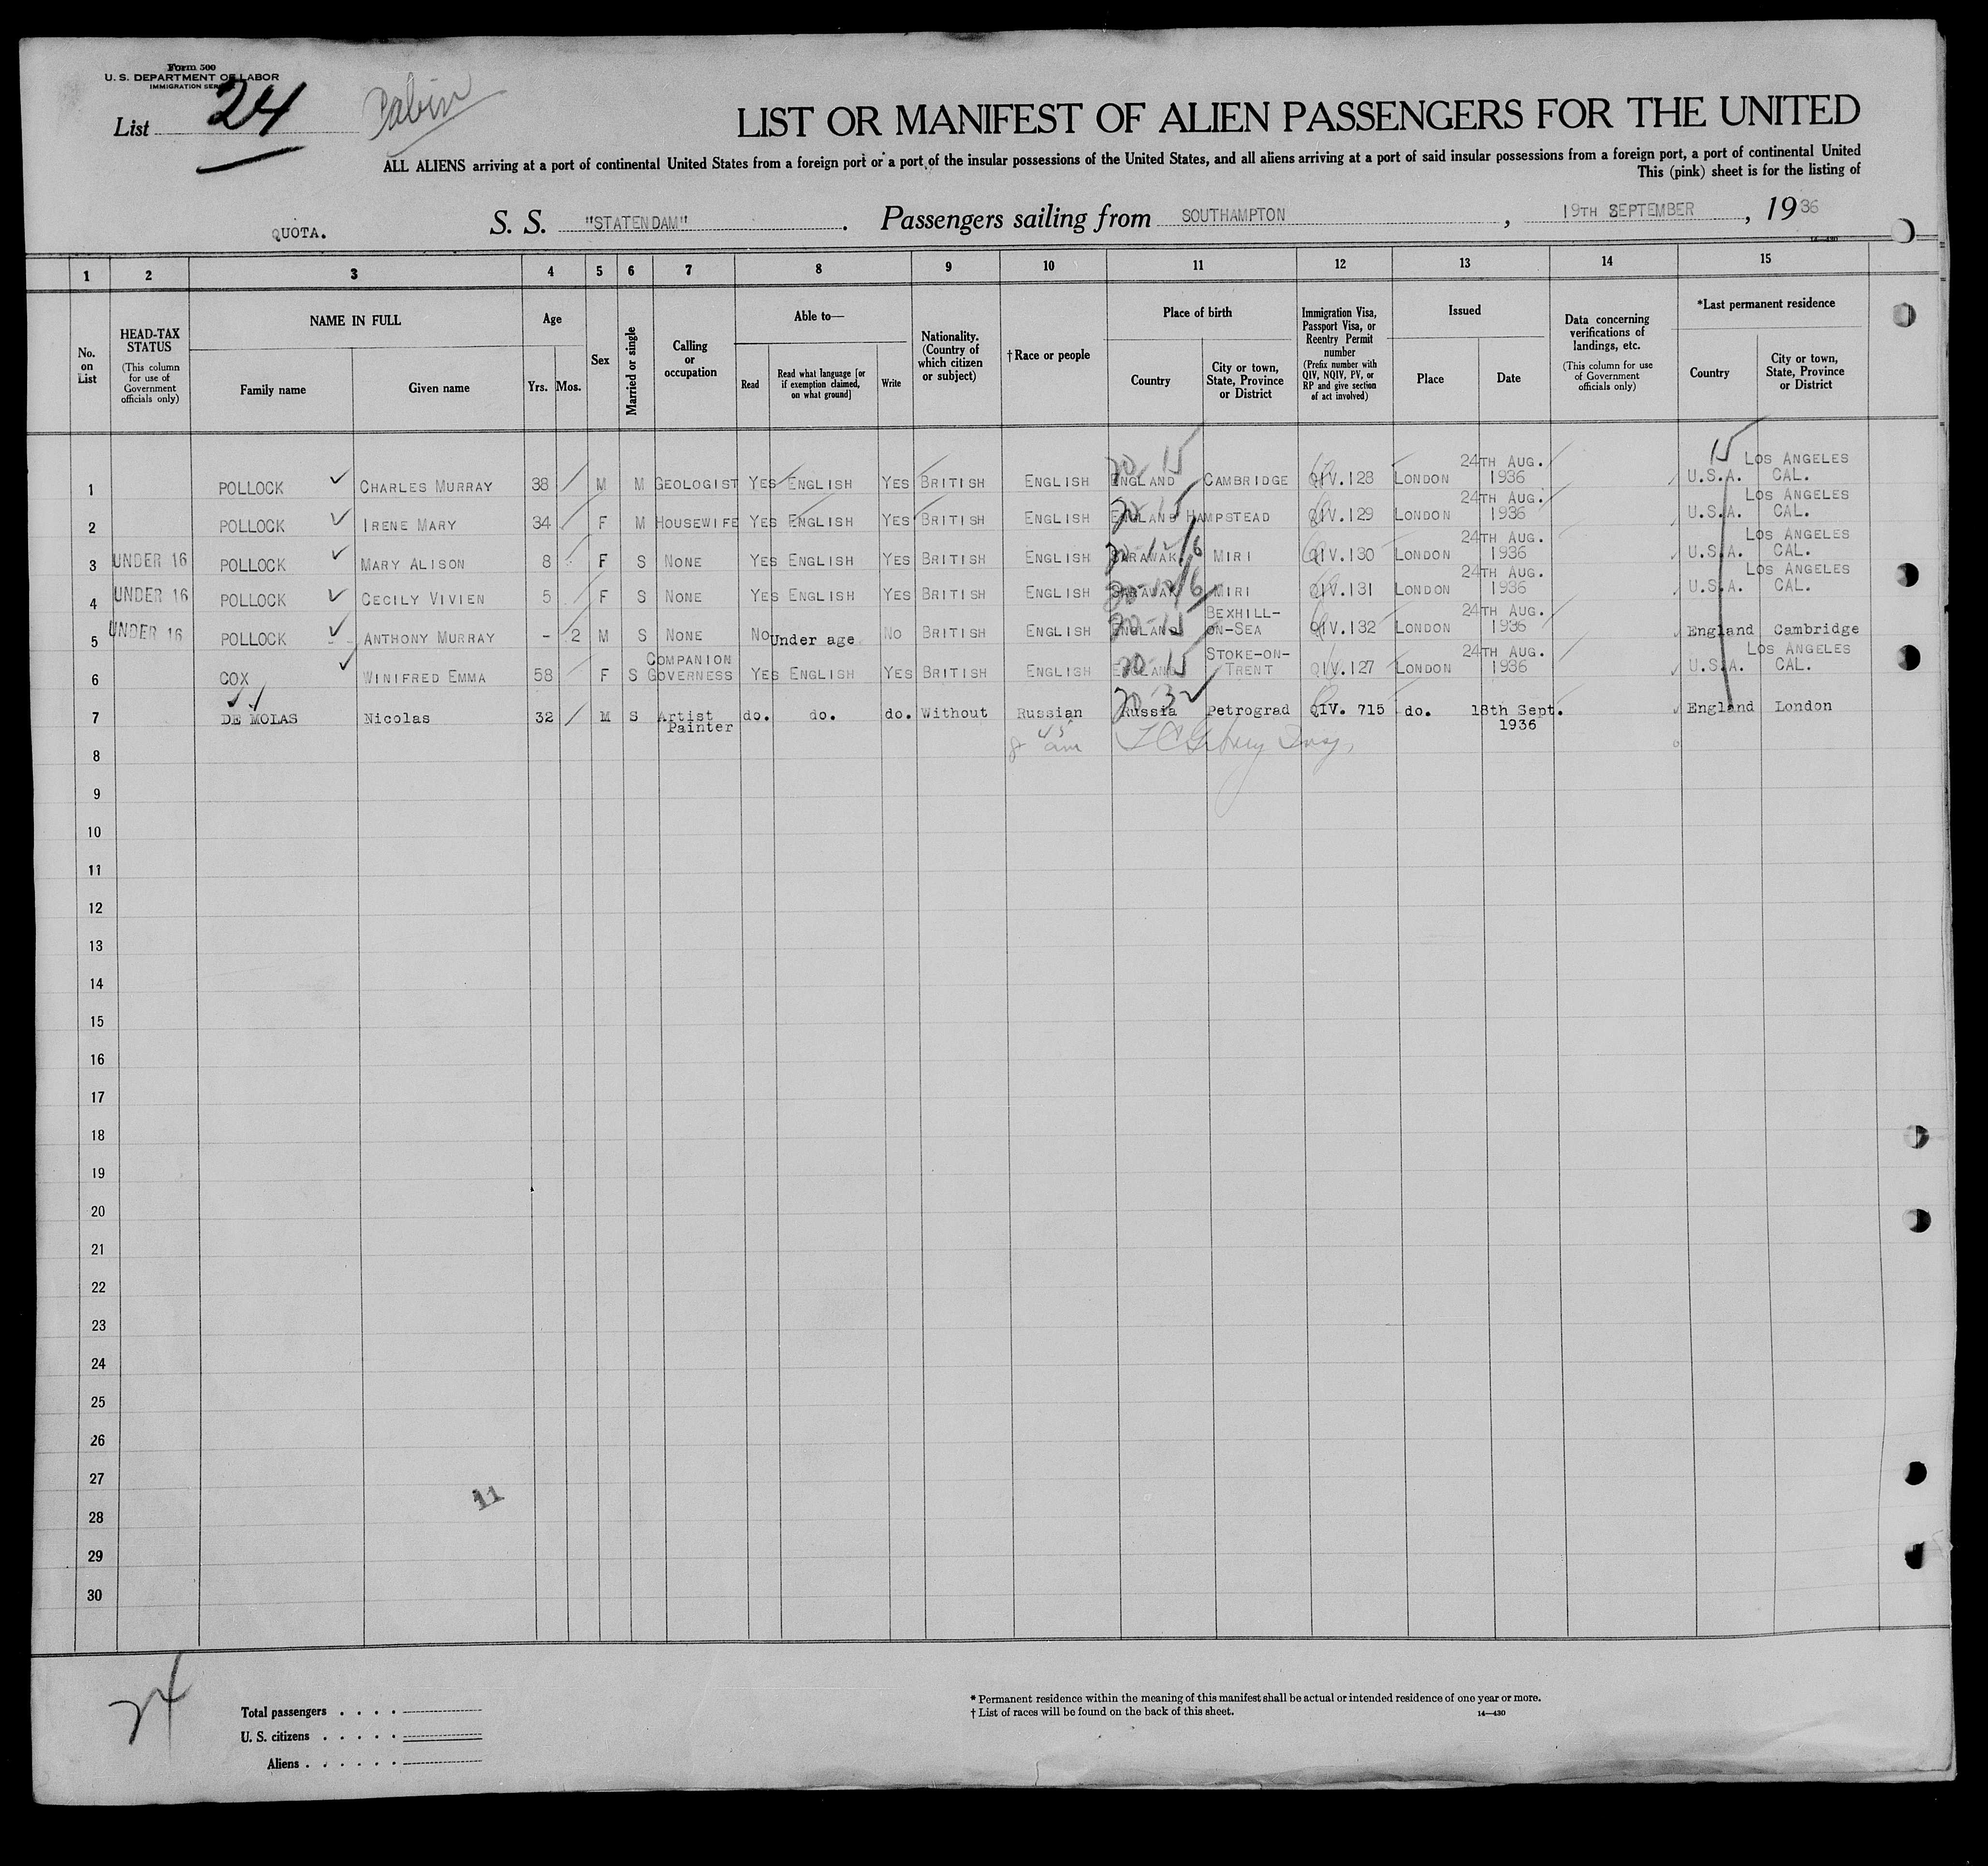 Form 500
U. S. DEPARTMENT OF LABOR
IMMIGRATION
List 24 Cabin
LIST OR MANIFEST OF ALIEN PASSENGERS FOR THE UNITED
ALL ALIENS arriving at a port of continental United States from a foreign port or a port of the insular possessions of the United States, and all aliens arriving at a port of said insular possessions from a foreign port, a port of continental United
This (pink) sheet is for the listing of
QUOTA. S. S. "STATENDAM". Passengers sailing from SOUTHAMPTON, 19TH SEPTEMBER, 1936
14—430
1 2 3 4 5 6 7 8 9 10 11 12 13 14 15
No. on List
HEAD-TAX STATUS
(This column for use of Government officials only)
NAME IN FULL
Family name
Given name
Age
Yrs. Mos.
Sex
Married or single
Calling or occupation
Able to—
Read
Read what language [or if exemption claimed, on what ground]
Write
Nationality. (Country of which citizen or subject)
† Race or people
Place of birth
Country
City or town, State, Province or District
Immigration Visa, Passport Visa, or Reentry Permit number
(Prefix number with QIV, NQIV, PV, or RP and give section of act involved)
Issued
Place
Date
Data concerning verifications of landings, etc.
(This column for use of Government officials only)
*Last permanent residence
Country
City or town, State, Province or District
1 POLLOCK CHARLES MURRAY 38 M M GEOLOGIST YES ENGLISH YES BRITISH ENGLISH ENGLAND CAMBRIDGE QIV.128 LONDON 24TH AUG. 1936 U.S.A. LOS ANGELES CAL.
20 15 15
2 POLLOCK IRENE MARY 34 F M HOUSEWIFE YES ENGLISH YES BRITISH ENGLISH ENGLAND HAMPSTEAD QIV.129 LONDON 24TH AUG. 1936 U.S.A. LOS ANGELES CAL.
20 15
3 UNDER 16 POLLOCK MARY ALISON 8 F S NONE YES ENGLISH YES BRITISH ENGLISH SARAWAK MIRI QIV.130 LONDON 24TH AUG. 1936 U.S.A. LOS ANGELES CAL.
4 UNDER 16 POLLOCK CECILY VIVIEN 5 F S NONE YES ENGLISH YES BRITISH ENGLISH SARAWAK MIRI QIV.131 LONDON 24TH AUG. 1936 U.S.A. LOS ANGELES CAL.
5 UNDER 16 POLLOCK ANTHONY MURRAY - 2 M S NONE NO Under age NO BRITISH ENGLISH ENGLAND BEXHILL-ON-SEA QIV.132 LONDON 24TH AUG. 1936 England Cambridge
20-15
6 COX WINIFRED EMMA 58 F S COMPANION GOVERNESS YES ENGLISH YES BRITISH ENGLISH ENGLAND STOKE-ON-TRENT QIV.127 LONDON 24TH AUG. 1936 U.S.A. LOS ANGELES CAL.
20-15
7 DE MOLAS Nicolas 32 M S Artist Painter do. do. do. Without Russian Russia Petrograd QIV. 715 do. 18th Sept. 1936 England London
20 32
8
9
10
11
12
13
14
15
16
17
18
19
20
21
22
23
24
25
26
27
11
28
29
30
24
Total passengers
U. S. citizens
Aliens
* Permanent residence within the meaning of this manifest shall be actual or intended residence of one year or more.
† List of races will be found on the back of this sheet.
14—430